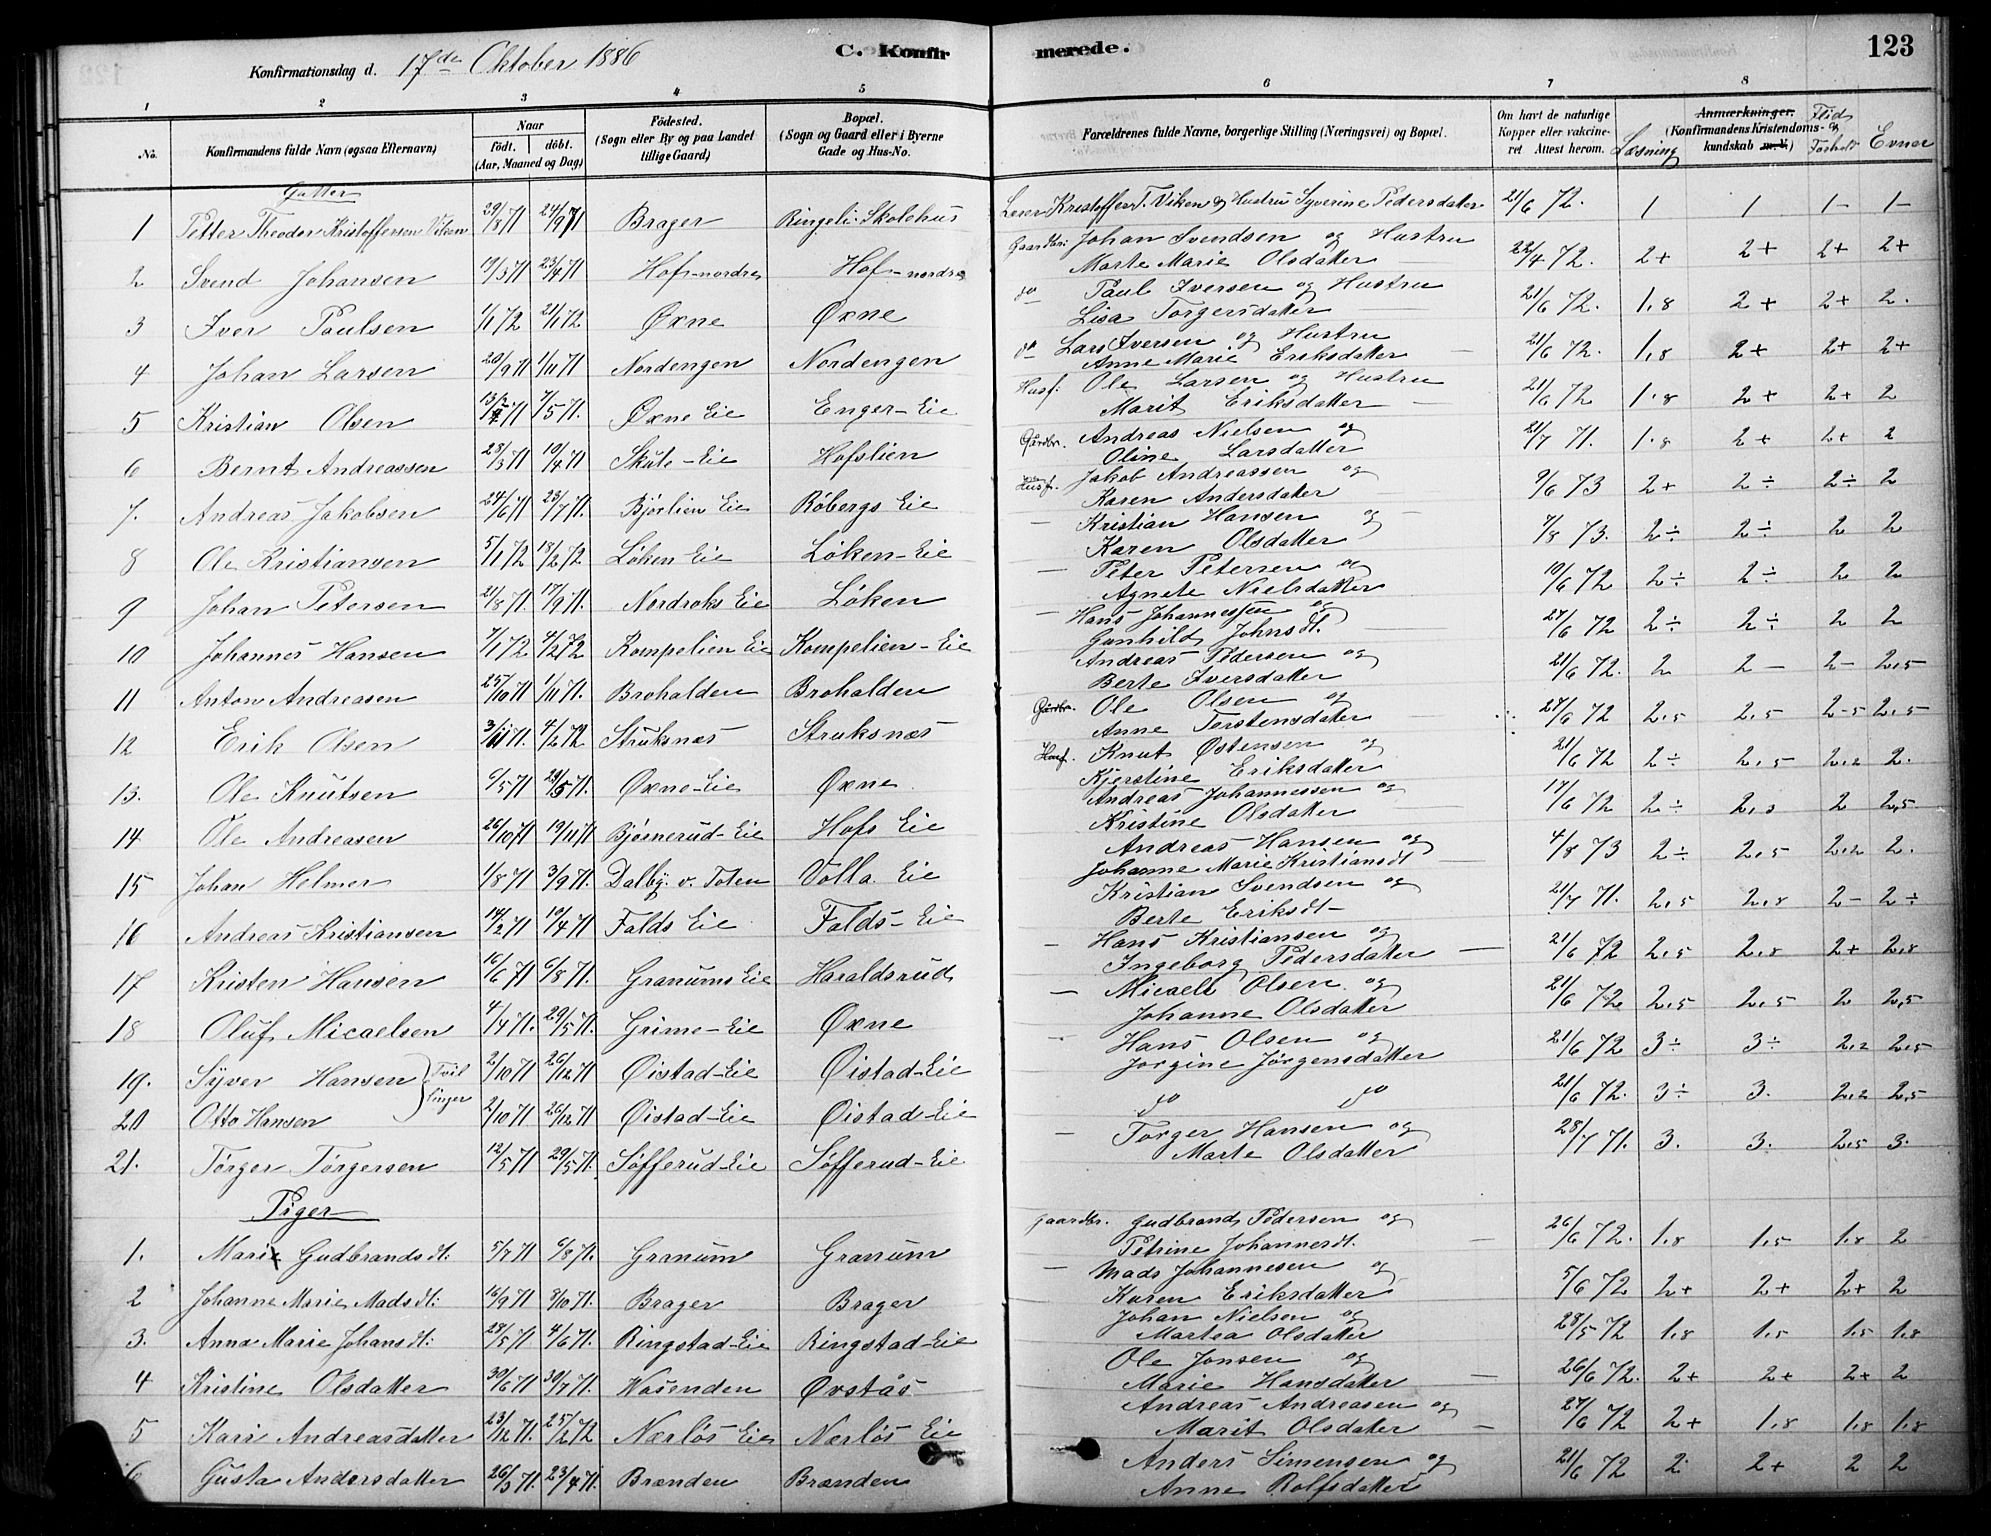 Konfirmationsdag d. 17de Oktober 1886 C. Konfirmerede. 123
1 2 3 4 5 6 7 8
No. Konfirmandens fulde Navn (ogsaa Efternavn) Naar födt. döbt. (Aar, Maaned og Dag) Födested. (Sogn eller By og paa Landet tillige Gaard) Bopæl. (Sogn og Gaard eller i Byerne Gade og Hus-No. Forældrenes fulde Navne, borgerlige Stilling (Næringsvei) og Bopæl. Om havt de naturlige Kopper eller vakcineret Attest herom. Læsning Anmærkninger. (Konfirmandens Kristendomskundskab m. V.) Flid og Forhold Evner
Gutter
1 Petter Theodor Kristoffersen Viken 29/8 71 24/9 71 Brager Ringeli Skolehus Lærer Kristoffer T. Viken og Hustru Syverine Pedersdatter 21/6 72. 1 1 1- 1-
2 Svend Johansen 19/3 71 23/4 71 Hof-nordre Hof-nordre Gaardbr: Johan Svendsen og Hustru Marte Marie Olsdatter 22/4 72. 2+ 2+ 2+ 2+
3 Iver Paulsen 1/1 72 21/1 72 Øxne Øxne do Paul Iversen og Hustru Lisa Torgersdatter 21/6 72. 1,8 2+ 2+ 2.
4 Johan Larsen 20/9 71 1/11 71 Nordengen Nordengen do Lars Iversen og Hustru Anne Marie Eriksdatter 21/6 72. 1,8 2+ 2+ 2+
5 Kristian Olsen 13/2 71 7/5 71. Øxne Eie Enger-Eie Husf. Ole Larsen og Hustru Marit Eriksdatter 21/6 72 1.8 2+ 2+ 2
6 Bernt Andreassen 23/3 71 10/4 71 Skute-Eie Hofslien Gårdbr. Andreas Nielsen og Oline Larsdatter 21/7 71. 1.8 2+ 2+ 2
7. Andreas Jakobsen 24/6 71 23/7 71. Bjørlien Eie Røbergs Eie Husf. Jakob Andreassen og Karen Andersdatter 9/6 73 2+ 2÷ 2÷ 2
8 Ole Kristiansen 5/1 72 18/2 72. Løken Eie Løken-Eie - Kristian Hansen og Karen Olsdatter 7/8 73. 2÷ 2÷ 2 2
9 Johan Petersen 21/8 71. 17/9 71. Nordroks Eie Løken - Peter Petersen og Agnete Nielsdatter 10/6 72 2÷ 2÷ 2 2
10 Johannes Hansen 7/1 72 4/2 72 Rompelien Eie Kompelien-Eie - Hans Johannessen og Gunhild Johnsdt. 27/6 72 2÷ 2÷ 2 2
11 Anton Andreasen 25/10 71 1/11 71. Brohalden Brohalden Andreas Pedersen og Berte Iversdatter 21/6 72. 2 2- 2- 2,5
12 Erik Olsen 3/11 71. 4/2 72 Struksnæs Struksnæs Gårdbr. Ole Olsen og Anne Torstensdatter 27/6 72 2,5 2,5 2-5 2,5
13. Ole Knutsen 6/5 71 29/5 71. Øxne-Eie Øxne Husf. Knut Østensen og Kjerstine Eriksdatter 21/6 72 2÷ 2,5 2,2 2.
14. Ole Andreasen 26/10 71 19/11 71 Bjørnerud-Eie Hofs Eie Andreas Johannessen og Kristine Olsdatter 17/6 72 2÷ 2,3 2 2,5
15 Johan Helmer 1/8 71 3/9 71. Dalby. v. Toten Volla. Eie Andreas Hansen og Johanne Marie Kristiansdt 4/8 73 2÷ 2,5 2,2 2.
16 Andreas Kristiansen 14/2 71 10/4 71 Falds Eie Falds-Eie Kristian Svendsen og Berte Eriksdt- 21/7 71. 2,5 2,8 2- 2÷
17 Kristen Hansen 16/6 71 6/8 71. Granums Eie Haraldsrud - Hans Kristiansen og Ingeborg Pedersdatter 21/6 72 2,5 2,8 2+ 2,8
18 Oluf Micaelsen 4/4 71. 29/5 71. Grime-Eie Øxne - Micael Olsen og Johanne Olsdatter 21/6 72 2,5 2,5 2 2,5
19. Syver Hansen } Tvillinger 2/10 71 26/12 71 Øistad-Eie Øistad-Eie Hans Olsen og Jorgine Jørgensdatter 21/6 72 3÷ 3÷ 2,2 2,5
20 Otto Hansen 2/10 71 26/12 71 Øistad-Eie Øistad-Eie do do 21/6 72. 3÷ 3. 2,2 2,5
21. Torger Torgersen 12/5 71 29/5 71. Søfferud-Eie Søfferud-Eie - Torger Hansen og Marte Olsdatter 28/7 71. 3. 3. 2,5 3.
Piger
1. Mari Gudbrandsdt. 5/7 71 6/8 71. Granum Granum Gaardbr. Gudbrand Pedersen og Petrine Johannesdt. 26/6 72. 1.8 1.5 1.8 2
2 Johanne Marie Madsdt: 16/9 71 8/10 71. Brager Brager - Mads Johannesen og Karen Eriksdatter 5/6 72 2+ 2+ 2+ 2
3. Anna Marie Johansdt: 28/5 71 4/6 71. Ringstad-Eie Ringstad-Eie Johan Nielsen og Martea Olsdatter 28/5 72 1.8 1.5 1.5 1.8
4 Kristine Olsdatter 30/6 71 30/7 71. Nosenden Øvstås Ole Jonsen og Marie Hansdatter 26/6 72. 2+ 2+ 2+ 2
5 Kari Andreasdatter 23/12 71. 25/2 72 Nærløs Eie Nærløs Eie Andreas Andreasen og Marit Olsdatter 27/6 72 2+ 1,8 1,8 1,8
6 Gusta Andersdatter 26/3 71. 23/4 71. Brænden Brænden Anders Simensen og Anne Rolfsdatter 21/6 72 2 2+ 2 2